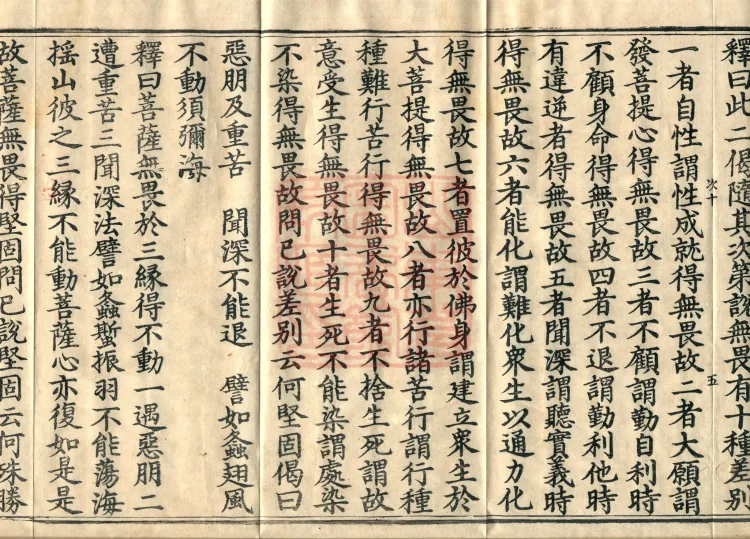 釋曰此二偈隨其次第說無畏有十種差別
次十
五
一者自性謂性成就得無畏故二者大願謂
發菩提心得無畏故三者不顧謂勤自利時
不顧身命得無畏故四者不退謂勤利他時
有違逆者得無畏故五者聞深謂聽實義時
得無畏故六者能化謂難化衆生以通力化
得無畏故七者置彼於佛身謂建立衆生於
大菩提得無畏故八者亦行諸苦行謂行種
種難行苦行得無畏故九者不捨生死謂故
意受生得無畏故十者生死不能染謂處染
不染得無畏故問已說差別云何堅固偈曰
惡朋及重苦　聞深不能退　譬如螽翅風
不動須彌海
釋曰菩薩無畏於三縁得不動一遇惡朋二
遭重苦三聞深法譬如螽蜇振羽不能蕩海
揺山彼之三縁不能動菩薩心亦復如是是
故菩薩無畏得堅固問已説堅固云何殊勝